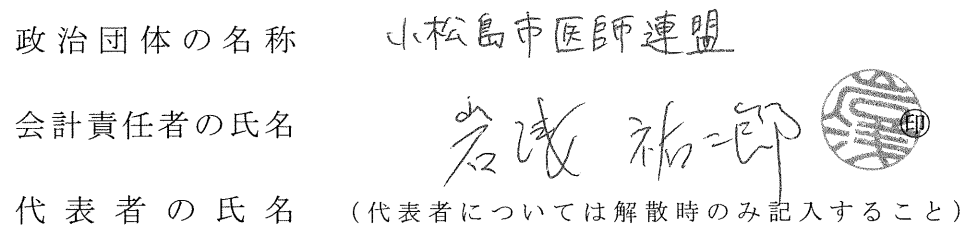 政治団体の名称 小松島市医師連盟
会計責任者の氏名 岩浅 祐二郎 印
代表者の氏名 (代表者については解散時のみ記入すること)